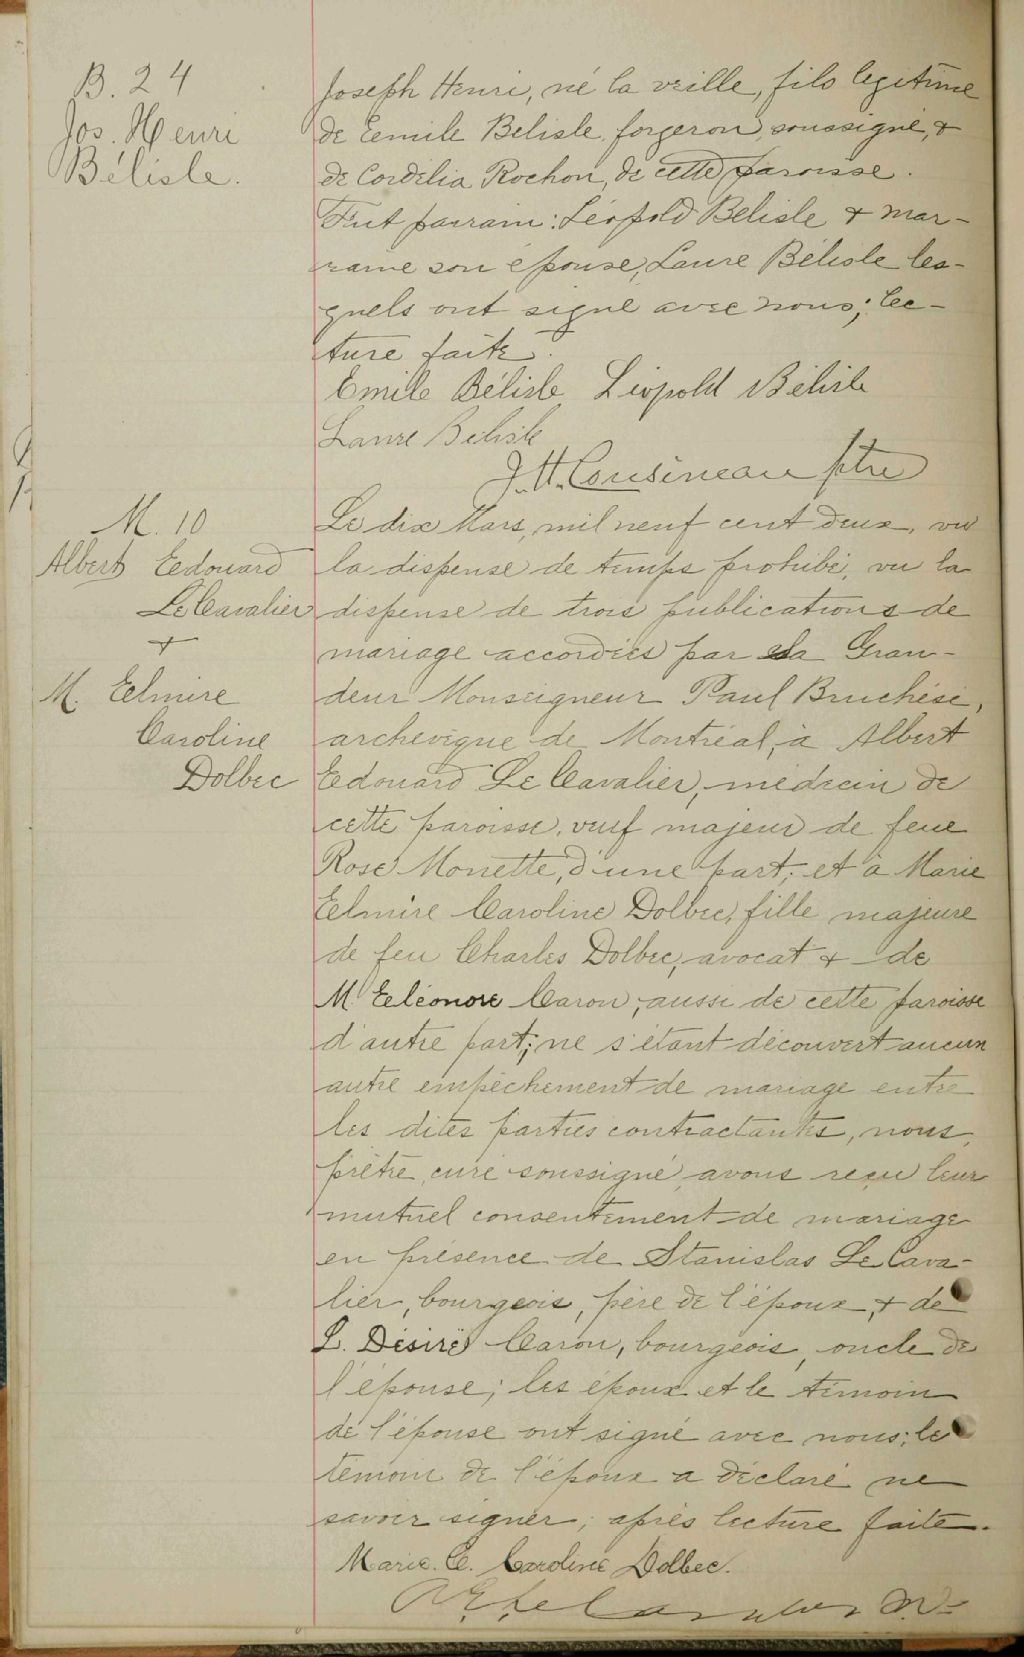 B. 24
Jos. Henri
Bélisle.
Joseph Henri, né la veille, fils legitime
de Eemile Belisle forgeron, soussigné, +
de Cordélia Rochon, de cette paroisse.
Fut parrain: Léopold Belisle + mar-
raine son épouse, Laure Bélisle les-
quels ont signé avec nous; lec-
ture faite.
Emile Bélisle Léopold Bélisle
Laure Bélisle
J. H. Cousineau ptre
M. 10
Albert Eedouard
LeCavalier
+
M. Eelmire
Caroline
Dolbec
Le dix Mars, mil neuf cent deux, vu
la dispense de temps prohibé, vu la
dispense de trois publications de
mariage accordées par sa Gran-
deur Monseigneur Paul Bruchési,
archevêque de Montréal, à Albert
Eedouard LeCavalier, médecin de
cette paroisse, veuf majeur de feue
Rose Monette, d'une part; et à Marie
Eelmire Caroline Dolbec, fille majeure
de feu Charles Dolbec, avocat + de
M. Eeléonore Caron, aussi de cette paroisse
d'autre part; ne s'étant découvert aucun
autre empêchement de mariage entre
les dites parties contractantes, nous,
prêtre, curé soussigné, avons reçu leur
mutuel consentement de mariage
en présence de Stanislas LeCava-
lier, bourgeois, père de l'époux, + de
L. Désiré Caron, bourgeois, oncle de
l'épouse; les époux et le témoin
de l'épouse ont signé avec nous; le
témoin de l'époux a déclaré ne
savoir signer; après lecture faite.
Marie. E. Caroline Dolbec.
A E LeCavalier